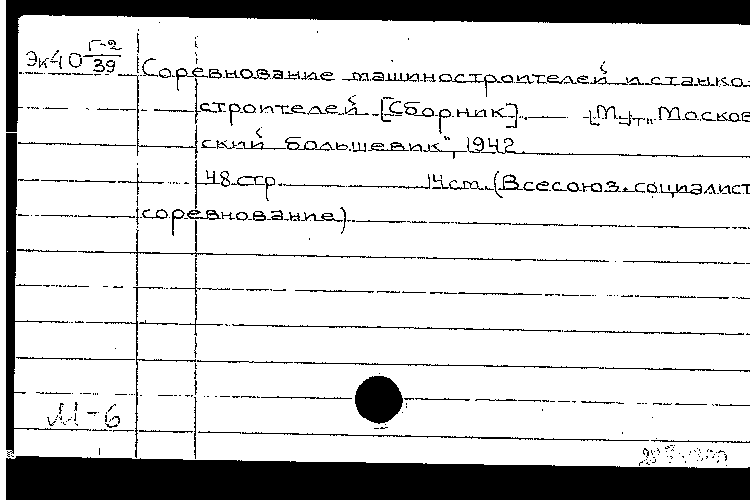 Эк40 Г-2/39 Соревнование машиностроителей и станко-
строителей [Сборник]. — [М.], "Москов
ский большевик", 1942.
48 стр. 14 см. (Всесоюз. социалист
соревнование)
М-6